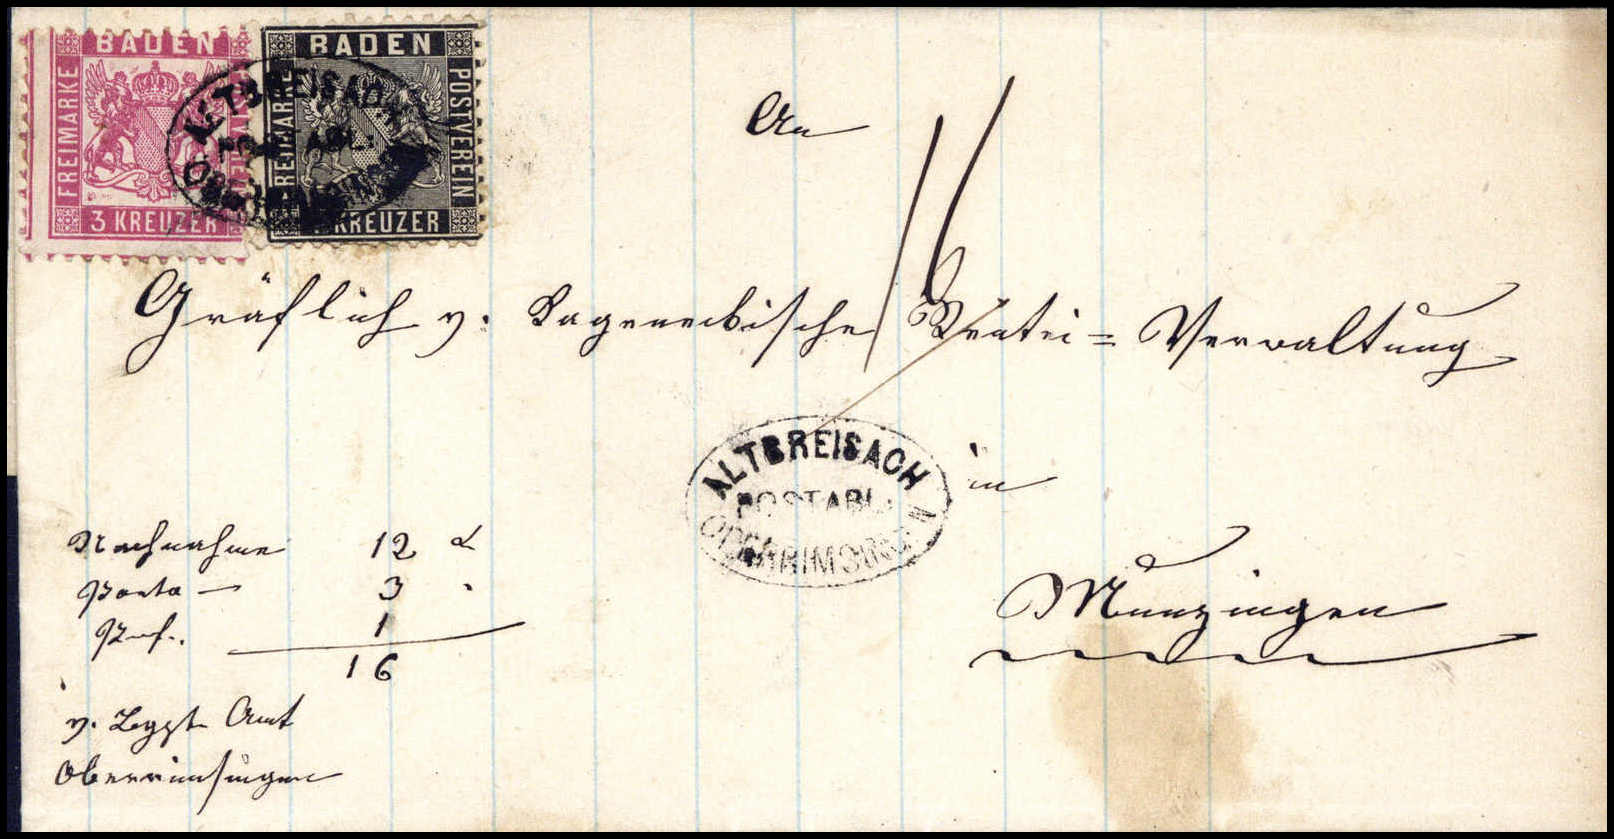 BADEN
FREIMARKE
3 KREUZER
BADEN
FREIMARKE
POSTVEREIN
KREUZER
ALTBREISACH
POSTABL.
An
16
Gräflich v. Kageneckische Rentei = Verwaltung
ALTBREISACH
POSTABL.
OBERRIMSINGEN
in
Munzingen
Nachnahme 12 x
Porto — 3 "
1
16
v. Amt
Oberrimsingen